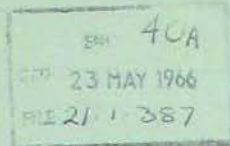 40A
23 MAY 1966
FILE 21.1.387